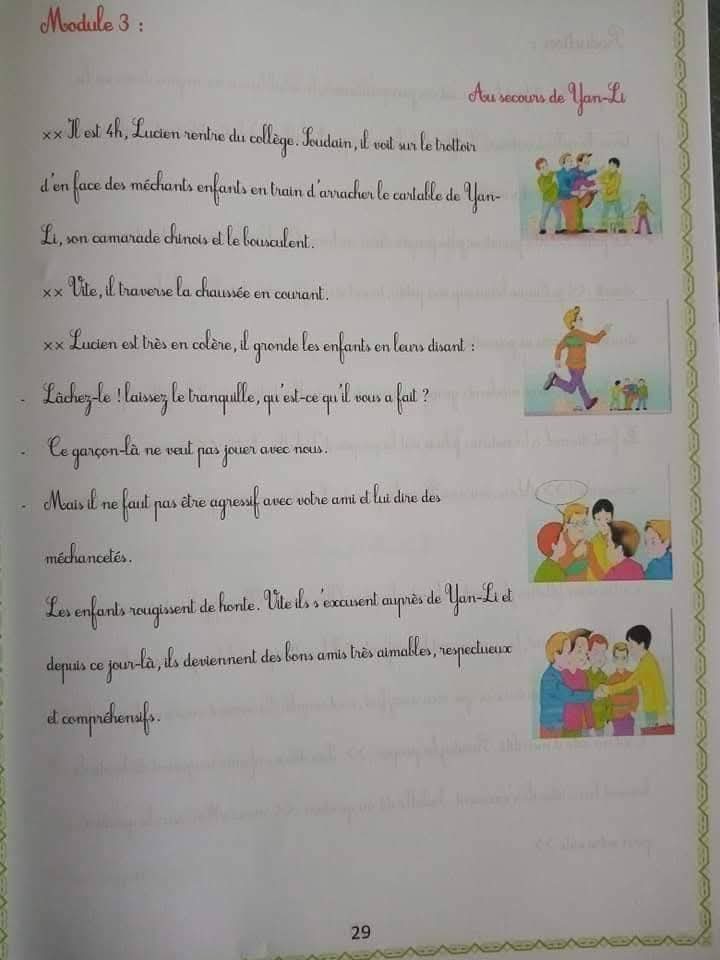 Module 3 :
Au secours de Yan-Li
xx Il est 4h, Lucien rentre du collège. Soudain, il voit sur le trottoir
d'en face des méchants enfants en train d'arracher le cartable de Yan-
Li, son camarade chinois et le bousculent.
xx Vite, il traverse la chaussée en courant.
xx Lucien est très en colère, il gronde les enfants en leurs disant :
- Lâchez-le ! laissez le tranquille, qu'est-ce qu'il vous a fait ?
- Ce garçon-là ne veut pas jouer avec nous.
- Mais il ne faut pas être agressif avec votre ami et lui dire des
méchancetés.
Les enfants rougissent de honte. Vite ils s'excusent auprès de Yan-Li et
depuis ce jour-là, ils deviennent des bons amis très aimables, respectueux
et compréhensifs.
29